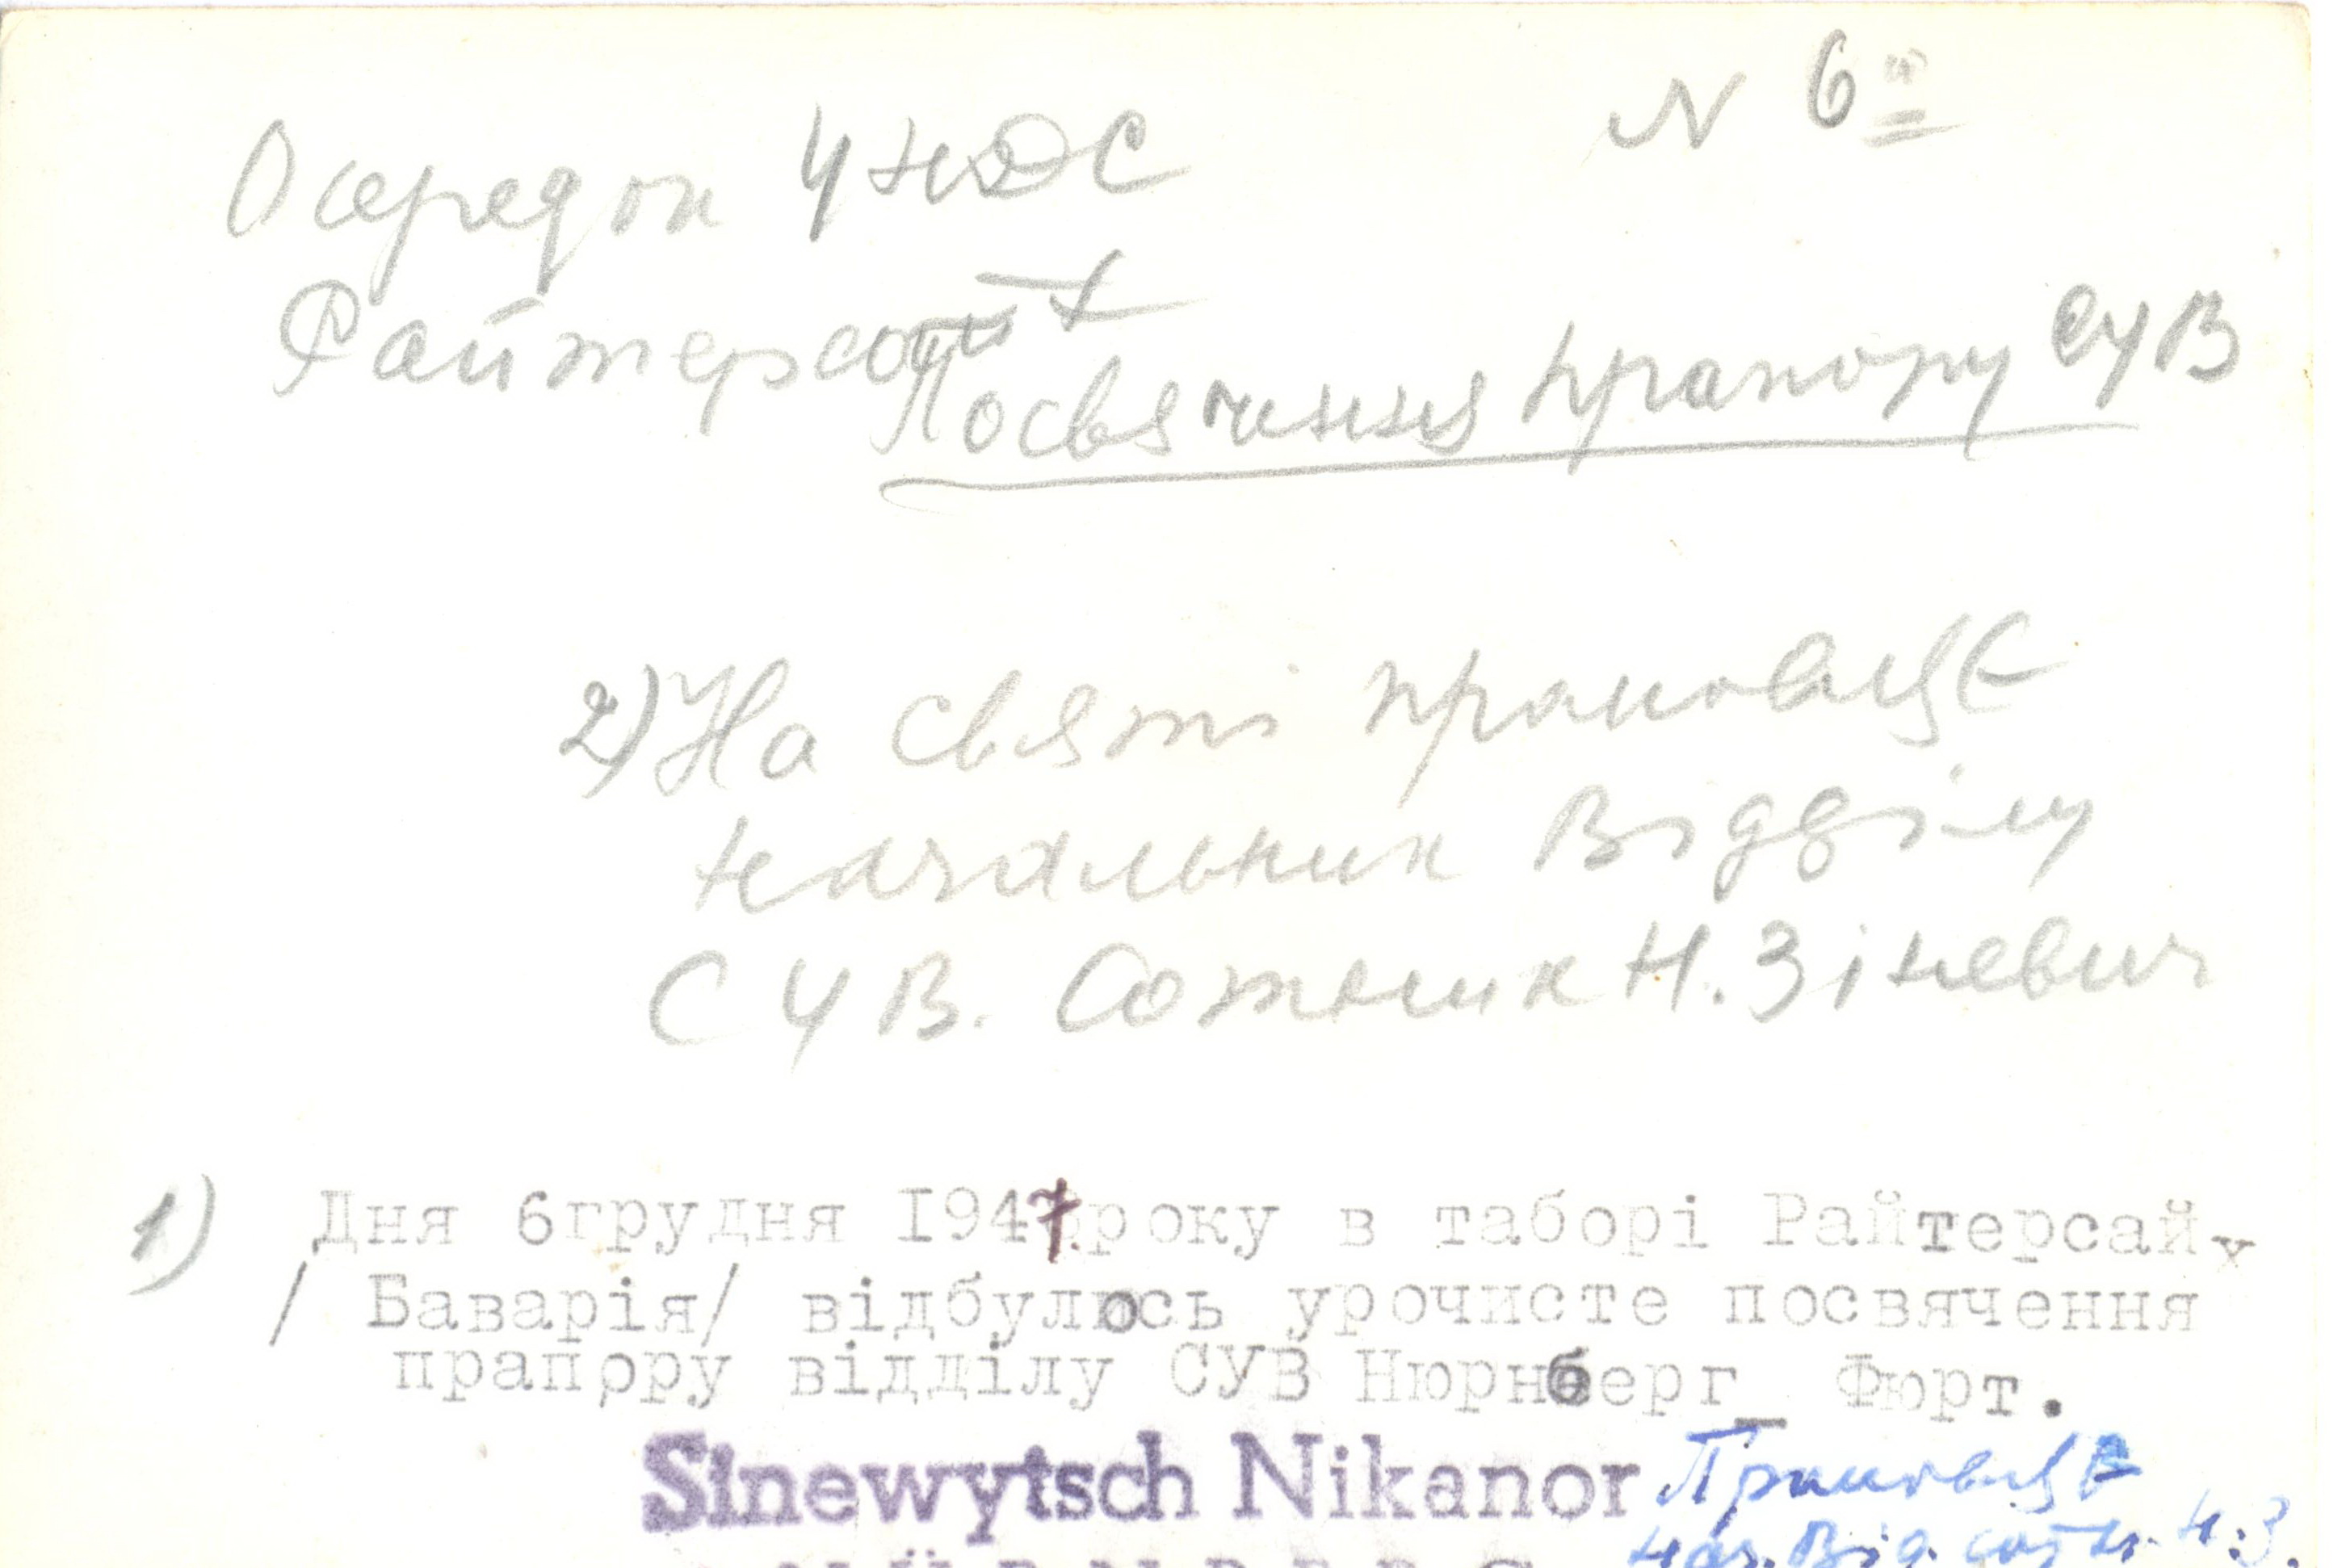 N 6
Осередок УНДС
Райтерсайх
Посвячення прапору СУВ
2) На святі промовляє
Начальник Відділу
СУВ. Сотник Н. Зіневич
1) Дня 6грудня 1947 року в таборі Райтерсайх
/ Баварія/ відбулось урочисте посвячення
прапору відділу СУВ Нюрнберг_ Фюрт.
Sinewytsch Nikanor
Промовляє
Нач. Від. сотн. Н. З.